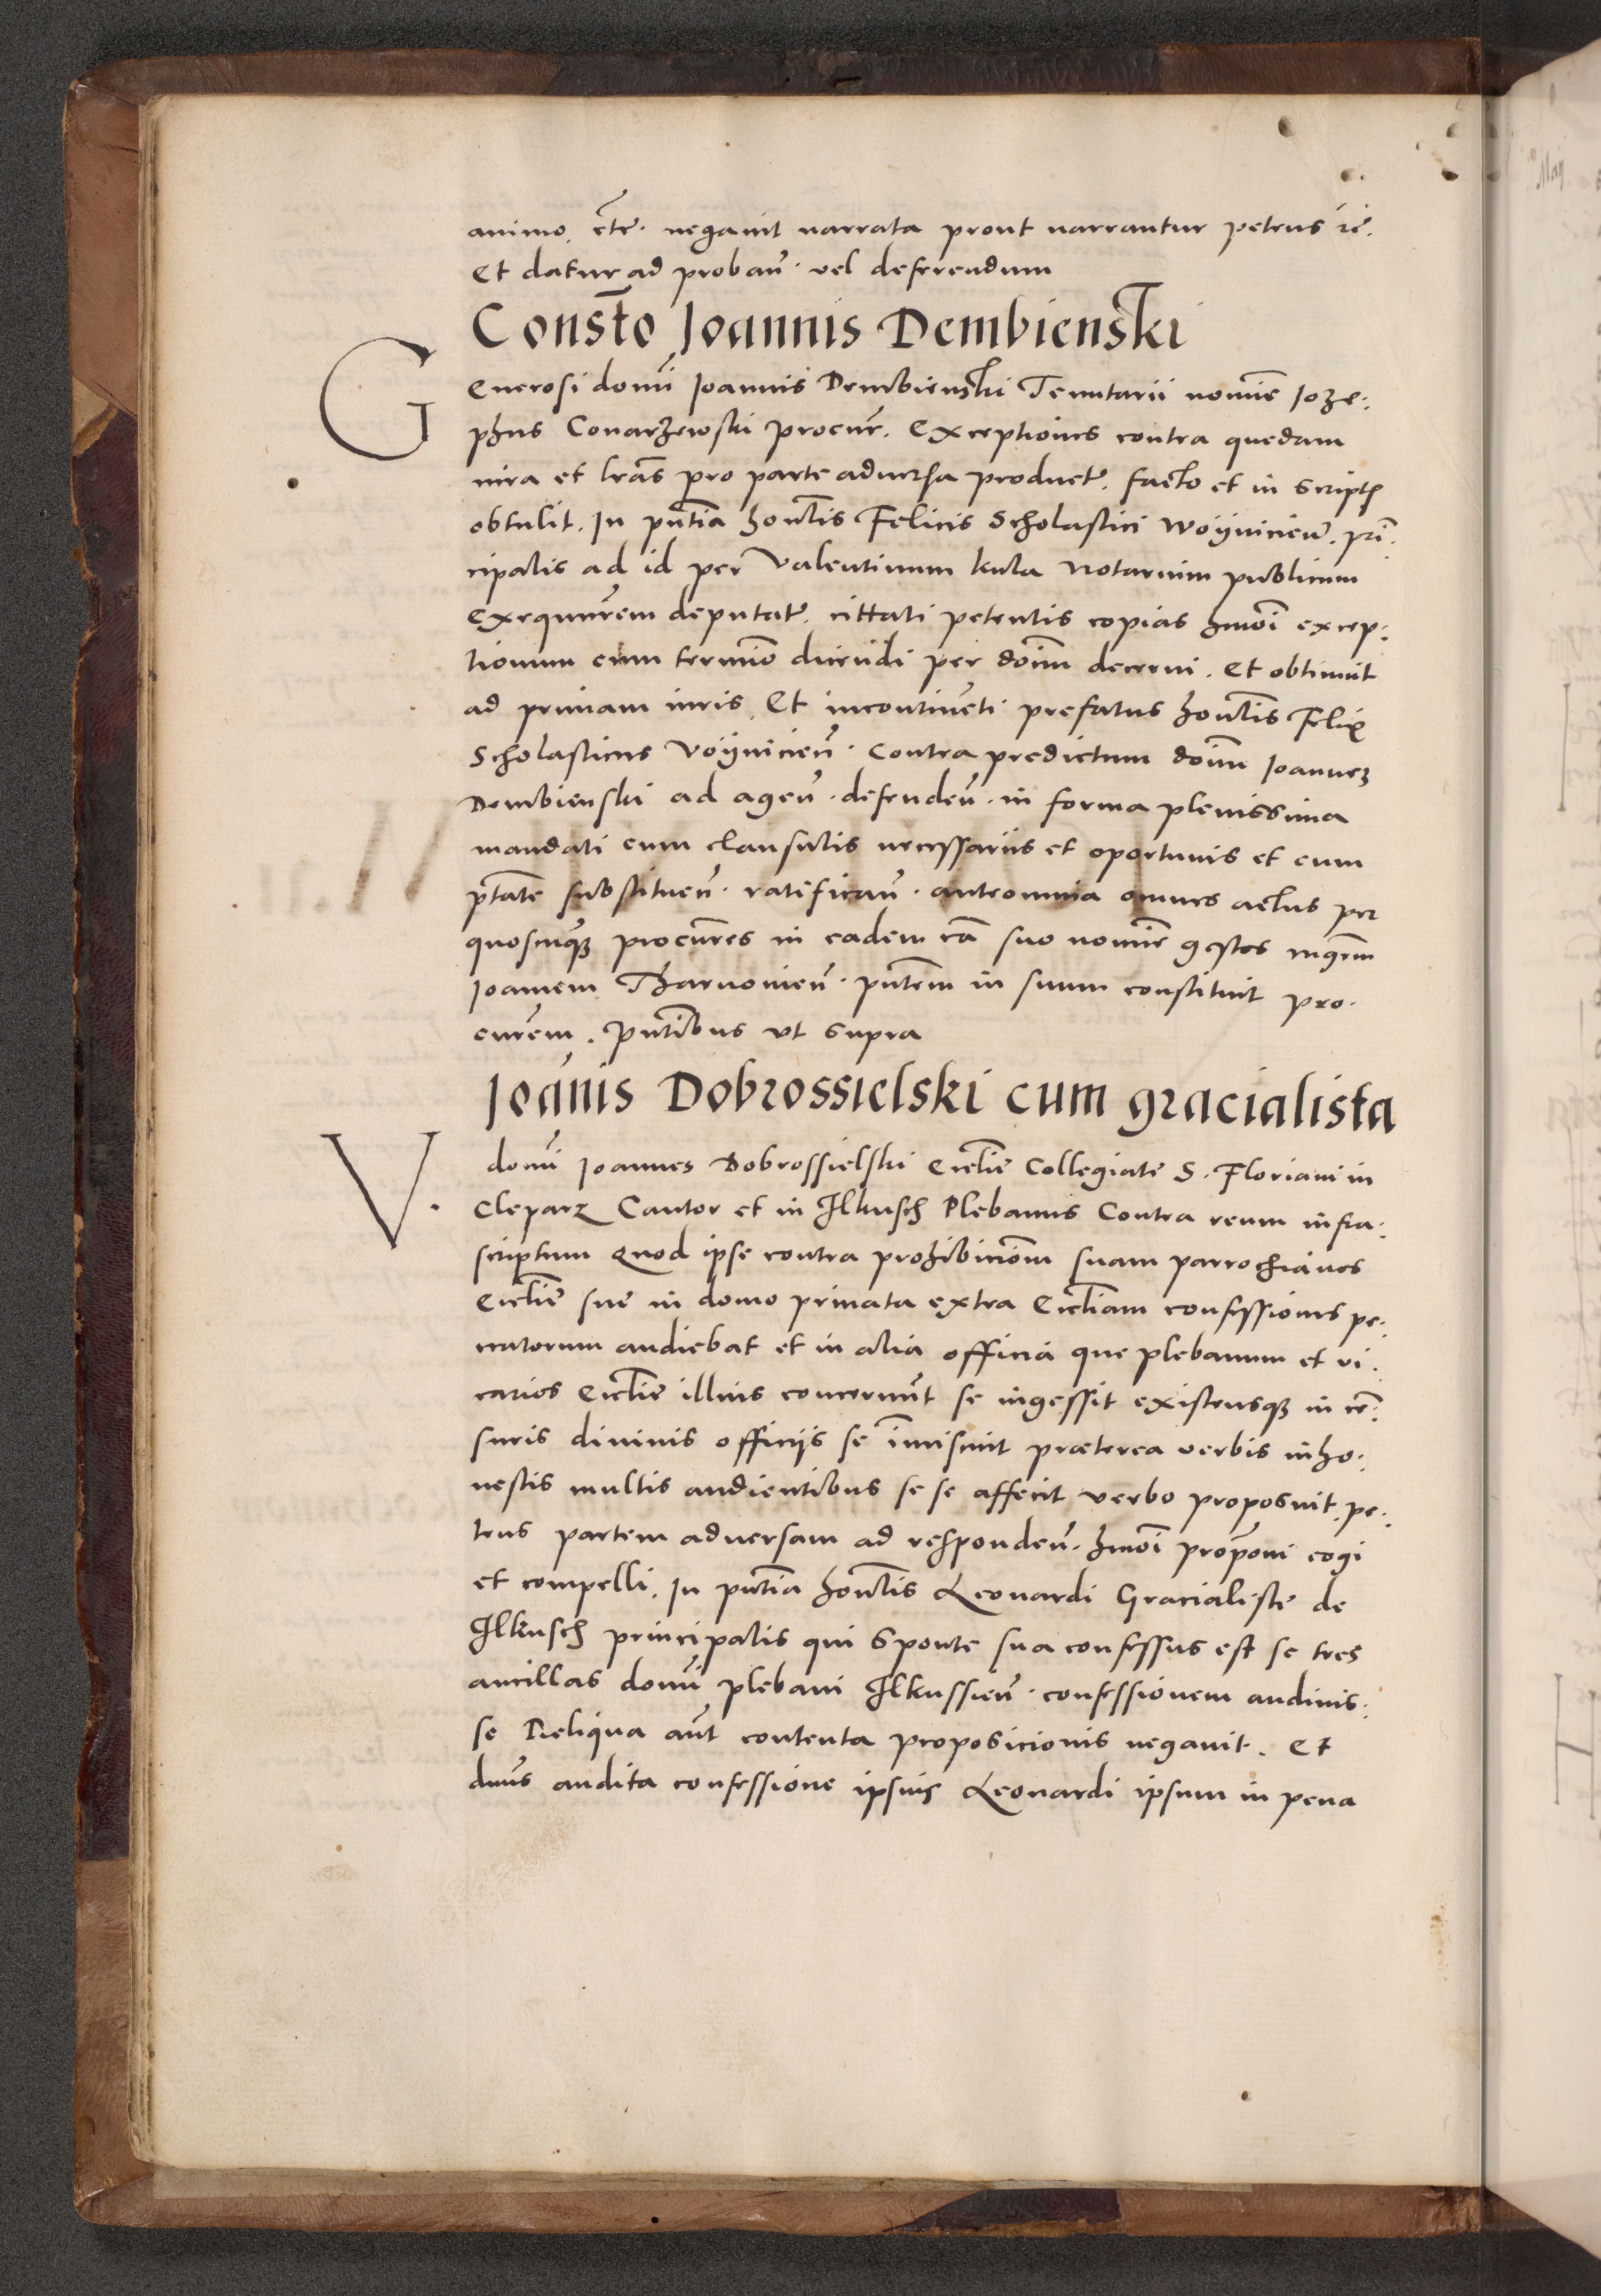 animo. etc̃. negavit narrata prout narrantur petens ic̃.
Et datur ad proban̄. vel deferendum
Consto̅ Joannis Dembienski
Generosi domi̅ Joannis Dembienski Tenutarii nomi̅e Joze-
phus Conarzewski procur̃. Exceptiones contra quedam
iura et lr̃as pro parte adversa product̃. facto et in scriptis
obtulit. In pn̅tia hon̅lis Felicis Scholastici Woÿnicien̄. prī-
cipalis ad id per Valentinum kula Notarium publicum
exequut̃rem deputat̃. cittati petentis copias hm̅oi excep-
tionum cum termi̅o dice̅di per doi̅m decerni. Et obtinuit
ad primam iuris. Et incontine̅ti prefatus hon̅lis Felix
Scholasticus Voÿnicien̄. Contra predictum doi̅m Joannez
Dembienski ad agen̄. defenden̄. in forma plenissima
mandati cum clausulis necessariis et oportunis et cum
p̅tate substituen̄. ratifican̄. anteomnia omnes actus per
quoscu̅qz procur̅es in eadem ca̅ suo nomi̅e gestos mgr̅m
Joannem Tharnovien̄. pn̅tem in suum constituit pro-
cur̅em. pn̅tibus ut supra
Joa̅nis Dobrossielski cum gracialista
V. domi̅ Joannes Dobrossielski Eccl̅ie Collegiate S. Floriani in
Cleparz Cantor et in Ilkusch Plebanus Contra reum infra-
scriptum Quod ipse contra prohibicio̅m suam parrochianos
Eccl̅ie sue in domo privata extra Eccl̅iam confessiones pe-
ccatorum audiebat et in alia officia que plebanum et vi-
carios Eccl̅ie illius concernu̅t se ingessit existensqz in ce̅-
suris divinis officiis se i̅miscuit præterea verbis inho-
nestis multis audientibus se se affecit verbo proposuit. pe-
tens partem adversam ad responden̄. hm̅oi propo̅ni cogi
et compelli. In pn̅tia hon̅lis Leonardi Gracialiste de
Ilkusch principalis qui sponte sua confessus est se tres
ancillas domi̅ plebani Ilkussien̄. confessionem audivis-
se Reliqua au̅t contenta proposicionis negavit. Et
dn̅us audita confessione ipsius Leonardi ipsum in pena